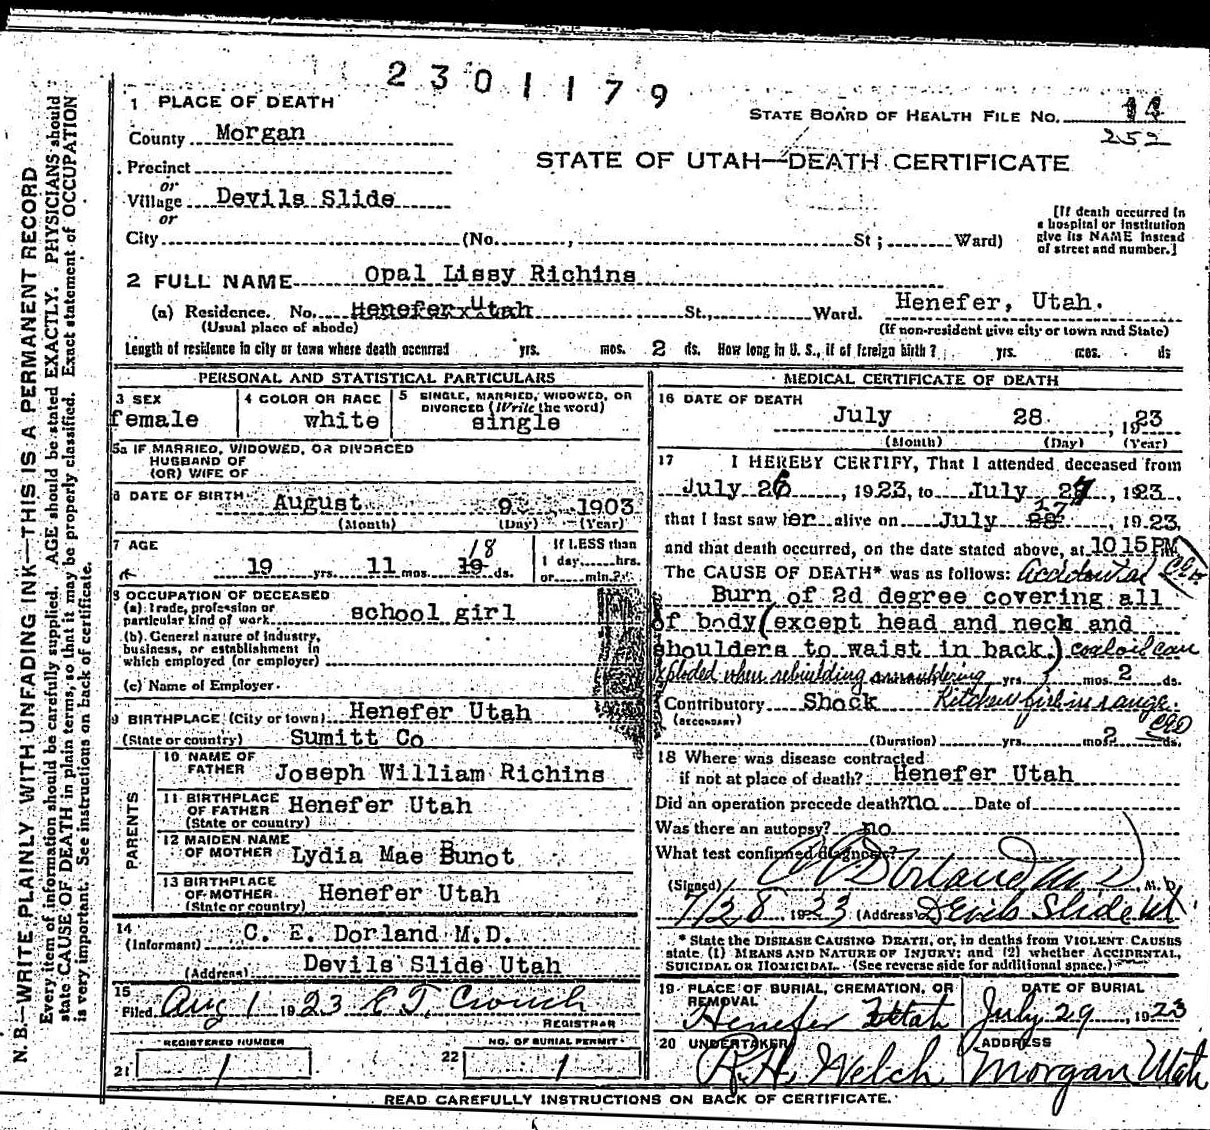 2301179
1 PLACE OF DEATH
STATE BOARD OF HEALTH FILE NO. 14
County Morgan
252
STATE OF UTAH—DEATH CERTIFICATE
Precinct
or
Village Devils Slide
or
City (No. , St ; Ward)
[If death occurred in a hospital or institution give its NAME instead of street and number.]
2 FULL NAME Opal Lissy Richins
(a) Residence. No. Henefer Utah St., Ward. Henefer, Utah.
(Usual place of abode) (If non-resident give city or town and State)
Length of residence in city or town where death occurred yrs. mos. 2 ds. How long in U. S., if of foreign birth? yrs. mos. ds
PERSONAL AND STATISTICAL PARTICULARS
3 SEX
female
4 COLOR OR RACE
white
5 SINGLE, MARRIED, WIDOWED, OR DIVORCED (Write the word)
single
5a IF MARRIED, WIDOWED, OR DIVORCED
HUSBAND OF
(OR) WIFE OF
6 DATE OF BIRTH August 9 1903
(Month) (Day) (Year)
7 AGE
18
19 yrs. 11 mos. 19 ds.
If LESS than
1 day hrs.
or min.?
8 OCCUPATION OF DECEASED
(a) Trade, profession or particular kind of work school girl
(b) General nature of industry, business, or establishment in which employed (or employer)
(c) Name of Employer
9 BIRTHPLACE (City or town) Henefer Utah
(State or country) Sumitt Co
PARENTS
10 NAME OF FATHER Joseph William Richins
11 BIRTHPLACE OF FATHER Henefer Utah
(State or country)
12 MAIDEN NAME OF MOTHER Lydia Mae Bunot
13 BIRTHPLACE OF MOTHER Henefer Utah
(State or country)
14
(Informant) C. E. Dorland M.D.
(Address) Devils Slide Utah
15
Filed Aug 1 1923 E T. Crouch
REGISTRAR
REGISTERED NUMBER
21 1
NO. OF BURIAL PERMIT
22 1
MEDICAL CERTIFICATE OF DEATH
16 DATE OF DEATH
July 28 , 1923
(Month) (Day) (Year)
17 I HEREBY CERTIFY, That I attended deceased from
July 26 , 1923, to July 27, 1923.
that I last saw her alive on July 28 27 , 1923,
and that death occurred, on the date stated above, at 10 15 PM
The CAUSE OF DEATH* was as follows: Accidental
Burn of 2d degree covering all
of body (except head and neck and
shoulders to waist in back.) coal oil can
xploded when rebuilding smouldering yrs. mos. 2 ds.
Contributory Shock Kitchen fire in range.
(SECONDARY)
(Duration) yrs. mos. 2 ds.
18 Where was disease contracted
if not at place of death? Henefer Utah
Did an operation precede death? no Date of
Was there an autopsy? no
What test confirmed diagnosis?
(Signed) Dorland M D M. D.
7/28 1923 (Address) Devils Slide Ut
* State the DISEASE CAUSING DEATH, or, in deaths from VIOLENT CAUSES
state (1) MEANS AND NATURE OF INJURY; and (2) whether ACCIDENTAL,
SUICIDAL OR HOMICIDAL. (See reverse side for additional space.)
19 PLACE OF BURIAL, CREMATION, OR REMOVAL
Henefer Utah
DATE OF BURIAL
July 29 , 1923
20 UNDERTAKER
R. H. Welch
ADDRESS
Morgan Utah
READ CAREFULLY INSTRUCTIONS ON BACK OF CERTIFICATE.
N. B.—WRITE PLAINLY WITH UNFADING INK—THIS IS A PERMANENT RECORD
Every item of information should be carefully supplied. AGE should be stated EXACTLY. PHYSICIANS should
state CAUSE OF DEATH in plain terms, so that it may be properly classified. Exact statement of OCCUPATION
is very important. See instructions on back of certificate.